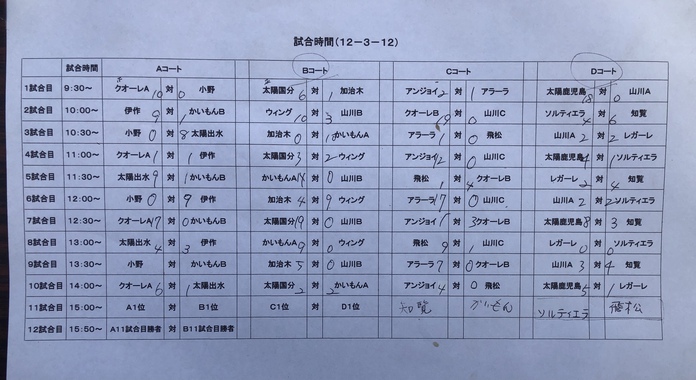 試合時間(12-3-12)
試合時間 Aコート Bコート Cコート Dコート
1試合目 9:30~ クオーレA 10 対 0 小野 太陽国分 6 対 1 加治木 アンジョイ 2 対 1 アラーラ 太陽鹿児島 18 対 0 山川A
2試合目 10:00~ 伊作 9 対 1 かいもんB ウィング 10 対 3 山川B クオーレB 9 対 0 山川C ソルティエラ 4 対 6 知覧
3試合目 10:30~ 小野 0 対 8 太陽出水 加治木 0 対 かいもんA アラーラ 1 対 0 飛松 山川A 2 対 2 レガーレ
4試合目 11:00~ クオーレA 1 対 1 伊作 太陽国分 3 対 2 ウィング アンジョイ 12 対 0 山川C 太陽鹿児島 4 対 1 ソルティエラ
5試合目 11:30~ 太陽出水 9 対 1 かいもんB かいもんA 対 0 山川B 飛松 1 対 4 クオーレB レガーレ 2 対 4 知覧
6試合目 12:00~ 小野 0 対 9 伊作 加治木 4 対 9 ウィング アラーラ 17 対 0 山川C 山川A 2 対 2 ソルティエラ
7試合目 12:30~ クオーレA 17 対 0 かいもんB 太陽国分 19 対 0 山川B アンジョイ 1 対 3 クオーレB 太陽鹿児島 8 対 3 知覧
8試合目 13:00~ 太陽出水 4 対 3 伊作 かいもんA 9 対 0 ウィング 飛松 9 対 1 山川C レガーレ 0 対 0 ソルティエラ
9試合目 13:30~ 小野 対 かいもんB 加治木 5 対 0 山川B アラーラ 7 対 0 クオーレB 山川A 3 対 4 知覧
10試合目 14:00~ クオーレA 6 対 1 太陽出水 太陽国分 2 対 2 かいもんA アンジョイ 4 対 0 飛松 太陽鹿児島 5 対 1 レガーレ
11試合目 15:00~ A1位 対 B1位 C1位 対 D1位 知覧 かいもん ソルティエラ 飛松
12試合目 15:50~ A11試合目勝者 対 B11試合目勝者